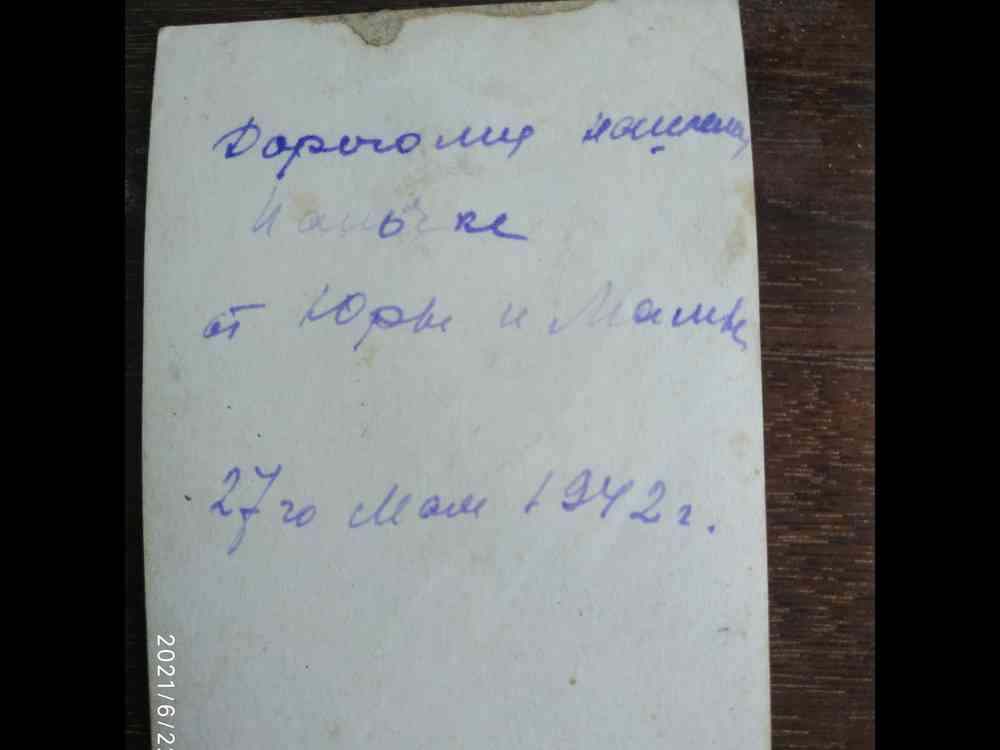 Дорогому нашему
Папочке
от Юры и Мамы
27го Мая 1942 г.
2021/6/23